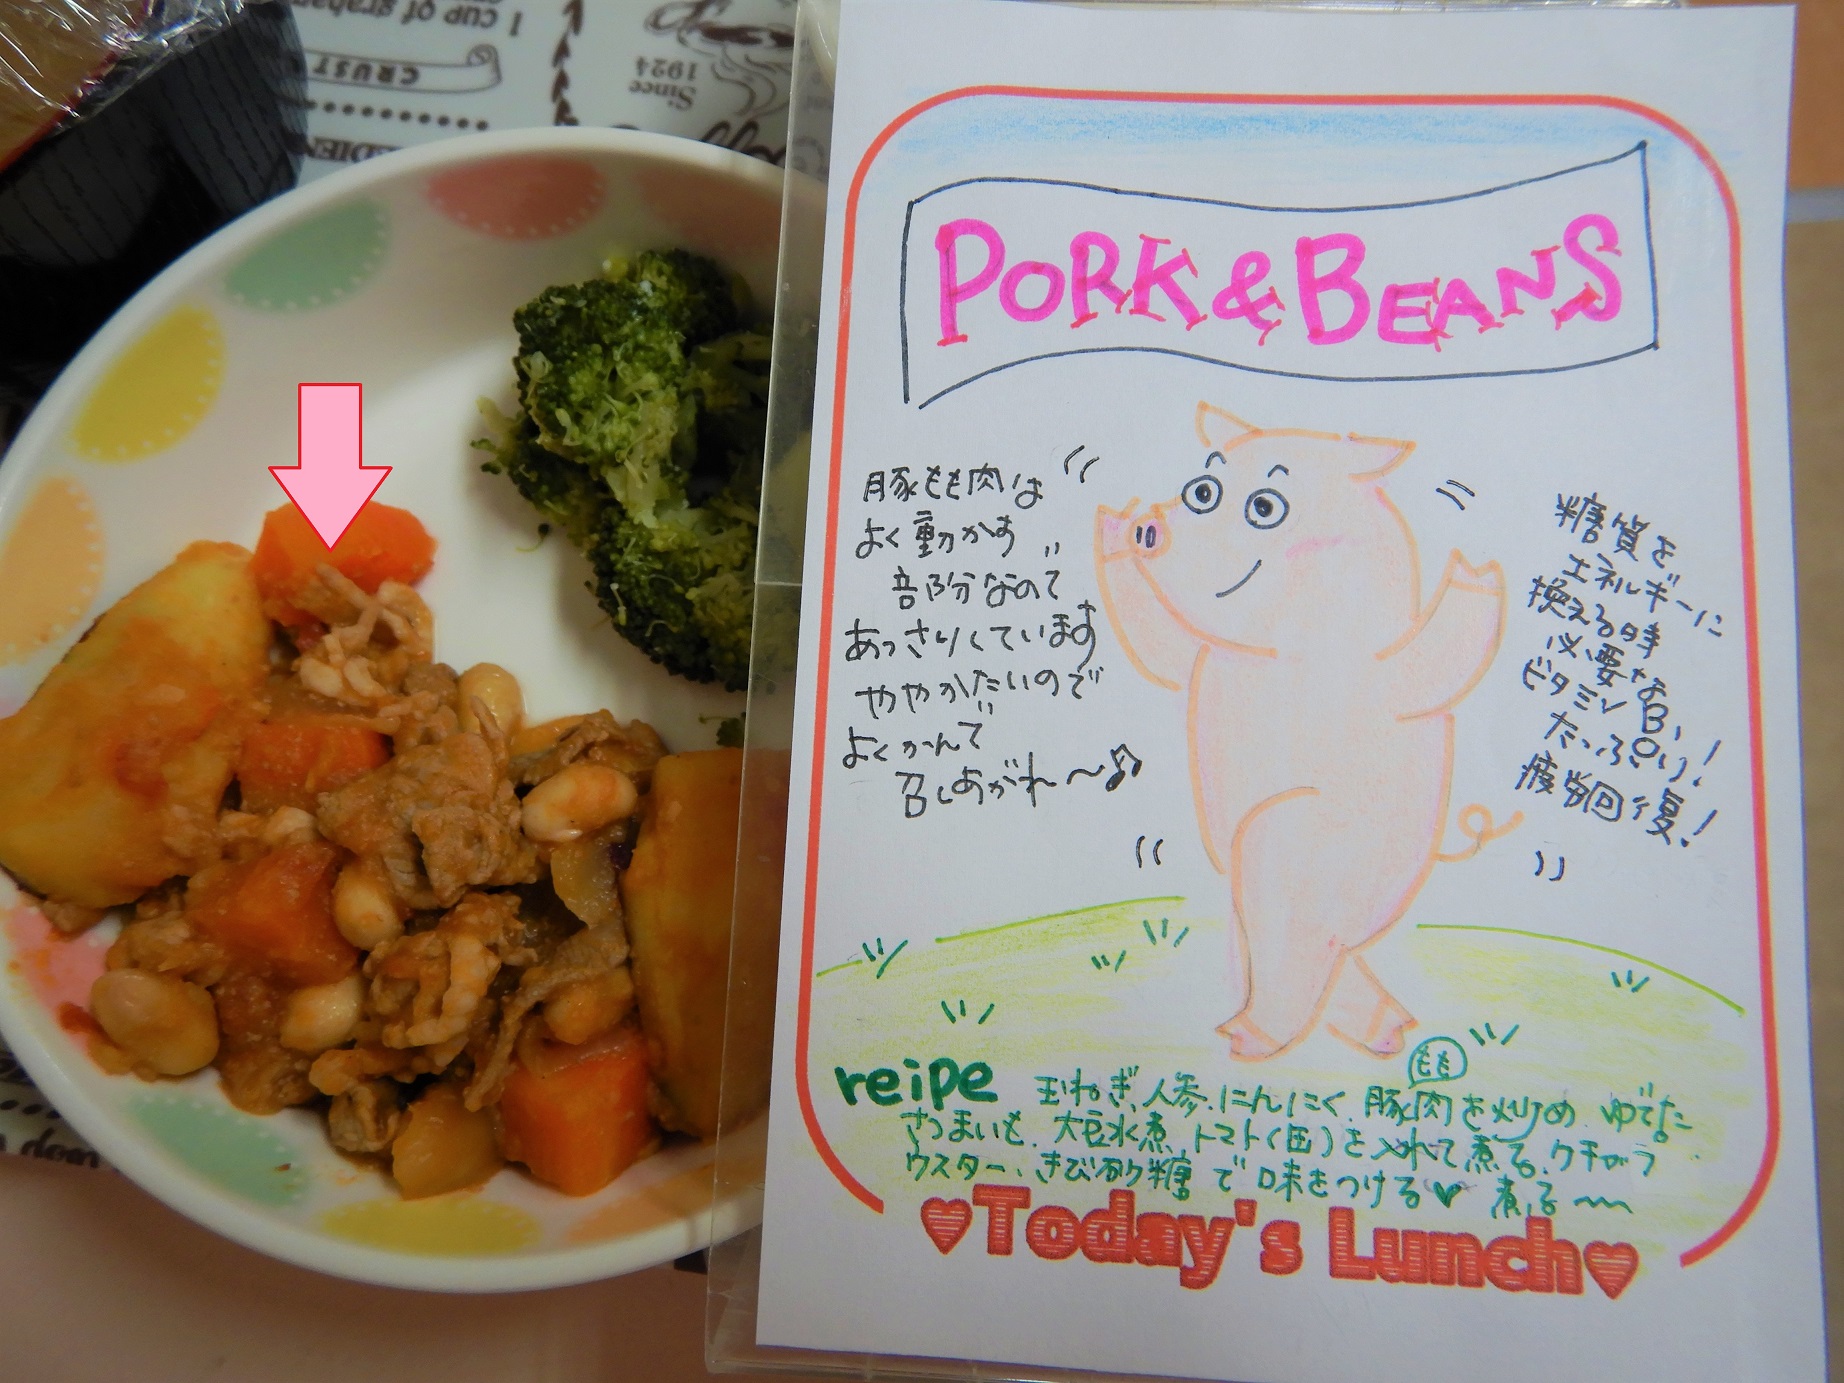 1 CUP of graham
CRUST
Since
1924
PORK & BEANS
豚もも肉は
よく動かす
部分なので
あっさりしています
ややかたいので
よくかんで
召しあがれ〜♫
糖質を
エネルギーに
換える時
必要な
ビタミンB₁
たっぷり!
疲労回復!
reipe
もも
玉ねぎ、人参、にんにく、豚肉を炒め、ゆでた
さつまいも、大豆水煮、トマト(缶)を入れて煮る、ケチャプ
ウスター、きび砂糖で味をつける♥ 煮る〜
♥Today's Lunch♥